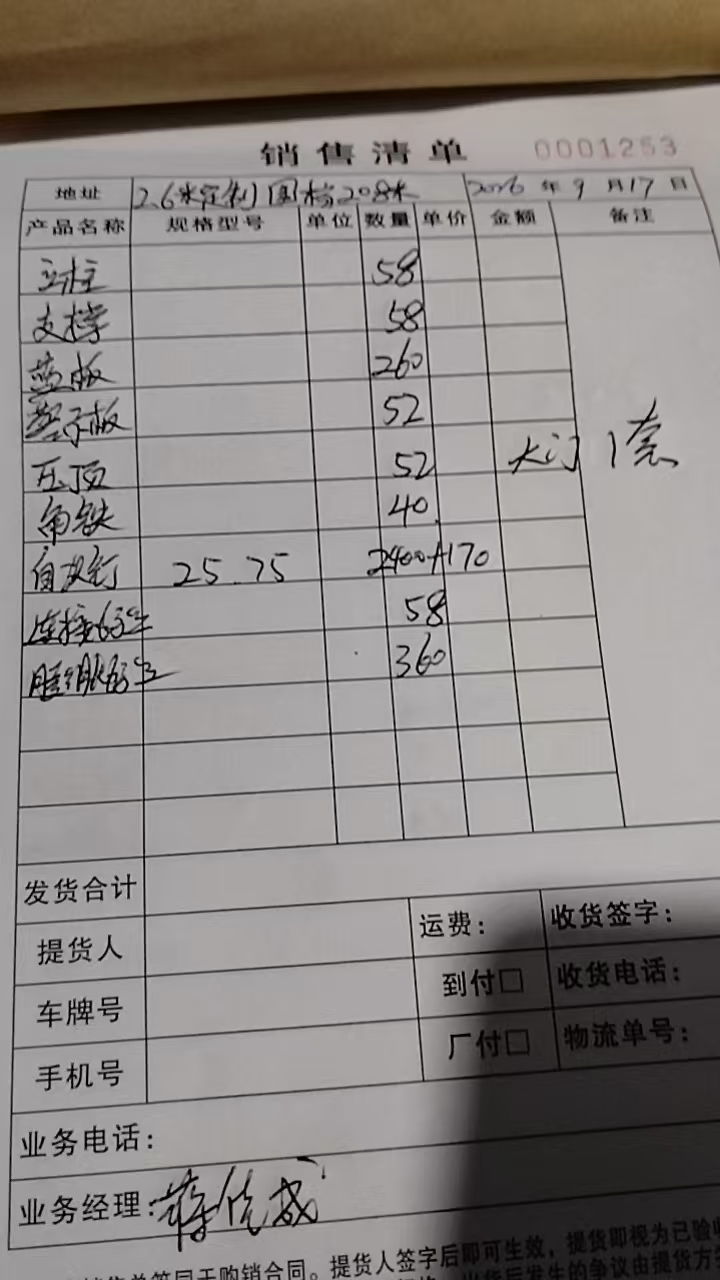 销售清单 0001253
地址 2.6米定制国标208米 2026年9月17日
产品名称 规格型号 单位 数量 单价 金额 备注
立柱 58
支撑 58
蓝板 260
警示板 52
压顶 52 大门1套
角铁 40
自攻钉 25.75 2400+170
连接 58
360
发货合计
提货人 运费: 收货签字:
车牌号 到付□ 收货电话:
手机号 厂付□ 物流单号:
业务电话:
业务经理:
销售单等同于购销合同。提货人签字后即可生效,提货即视为已验收
货后发生的争议由提货方